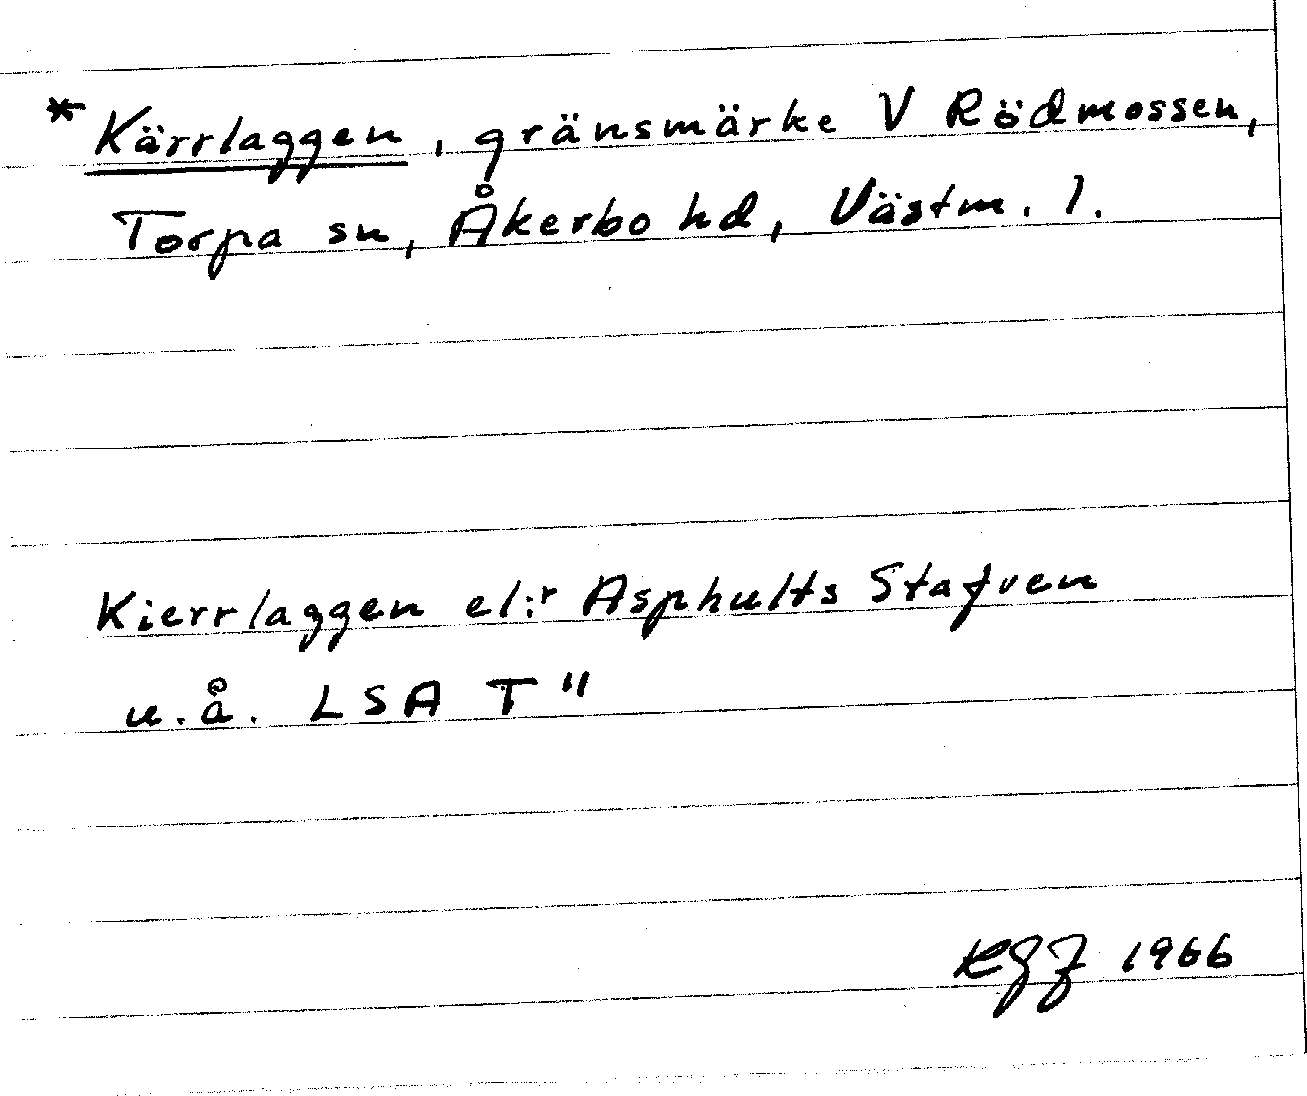 * Kärrlaggen, gränsmärke V Rödmossen,
Torpa sn, Åkerbo hd, Västm. l.
Kierrlaggen el:r Asphults Stafven
u.å. LSA T"
1966